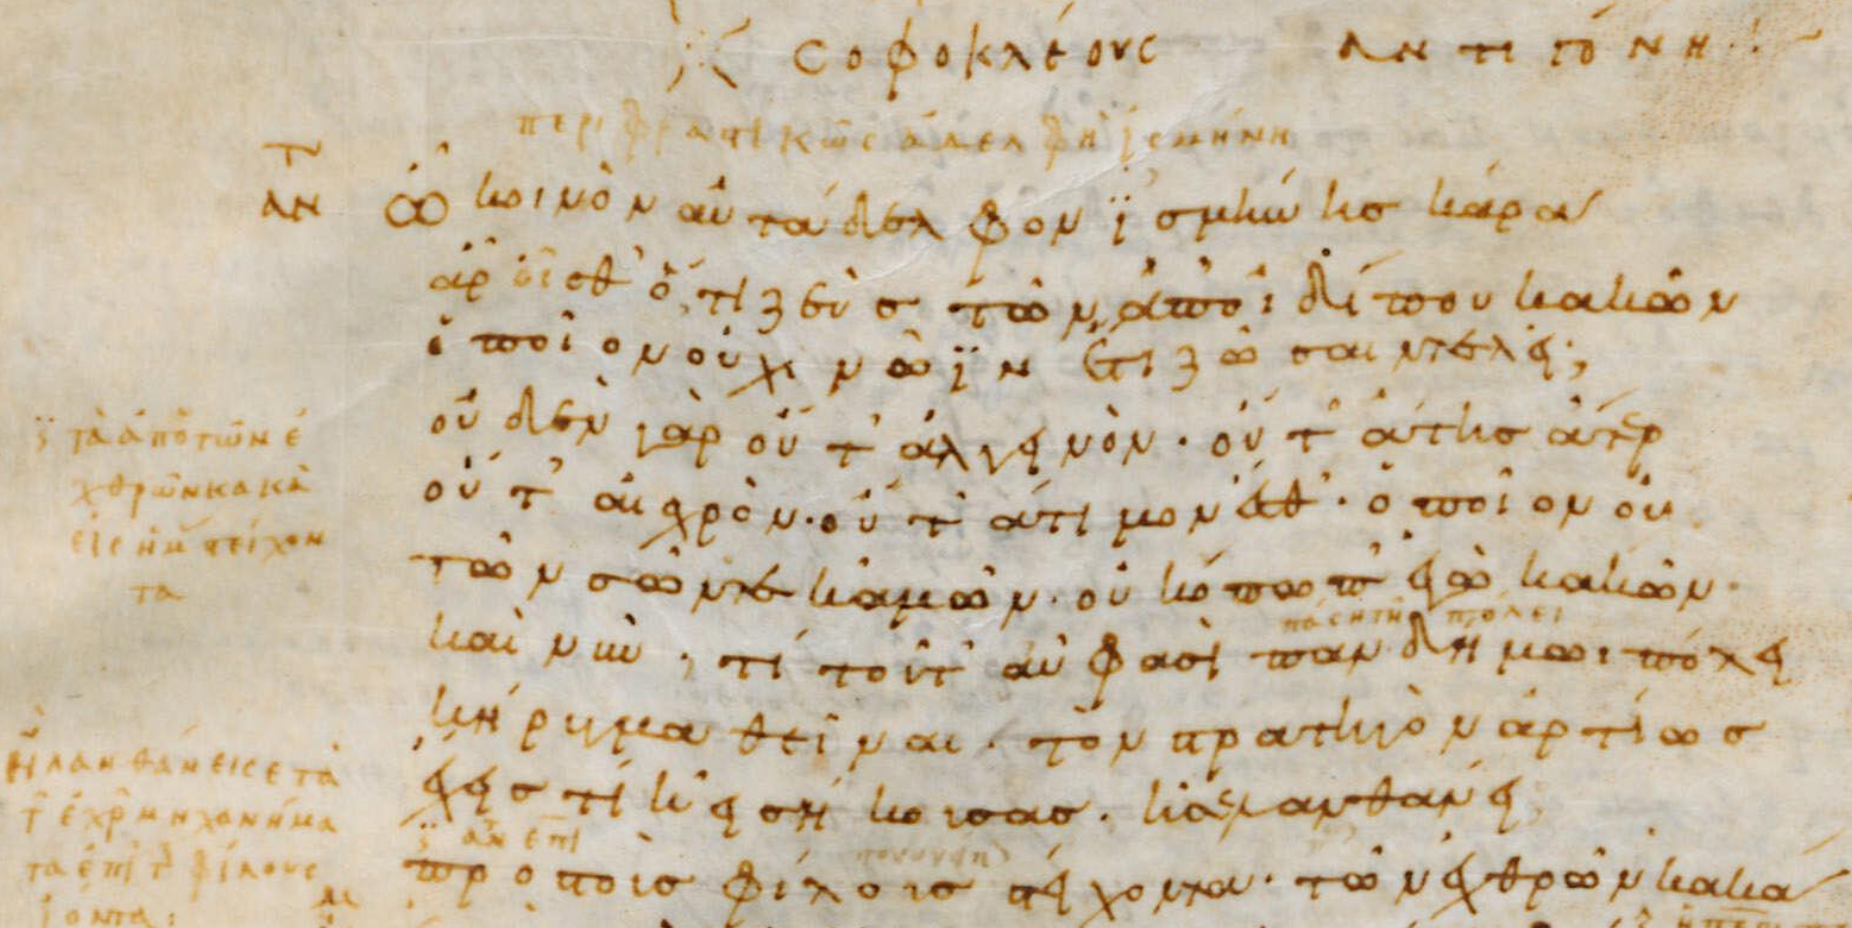 Σοφοκλέους Ἀντιγόνη
περιφραστικῶς ἀδελφὴ ἰσμήνη
ΑΝΤ ὦ κοινὸν αὐτάδελφον ϊσμήνης κάρα
ἆρ οἶσθ' ὅ,τι ζεὺσ τῶν ἀπ' οἰδίπου κακῶν
ὁποῖον οὐχὶ νῶϊν ἔτι ζώσαιν τελεῖ;
οὐδὲν γὰρ οὔτ' ἀλγεινὸν· οὔτ' ἄτησ ἄτερ
οὔτ' αἰσχρὸν· οὔτ' ἄτιμον ἐσθ'· ὁποῖον οὐ
τῶν σῶν τε κἀμῶν· οὐκ ὄπωπ' ἐγὼ κακῶν·
πάση τῆ πόλει
καὶ νῦν, τί τοῦτ' αὖ φασὶ πανδήμωι πόλει
κήρυγμα θεῖναι· τὸν στρατηγὸν ἀρτίωσ
ἔχεισ τί κεἰσήκουσασ· ἤ σε λανθάνει
πρὸσ τοὺσ φίλουσ στείχοντα· τῶν ἐχθρῶν κακά
τὰ ἀπὸ τῶν ἐ
χθρῶν κακὰ
εἰς ἡμ στείχον
τα
ἢ λανθάνει σε τὰ
τ ἐχρ μηχανήμα
τα ἐπὶ τ φίλους
ἰόντα: